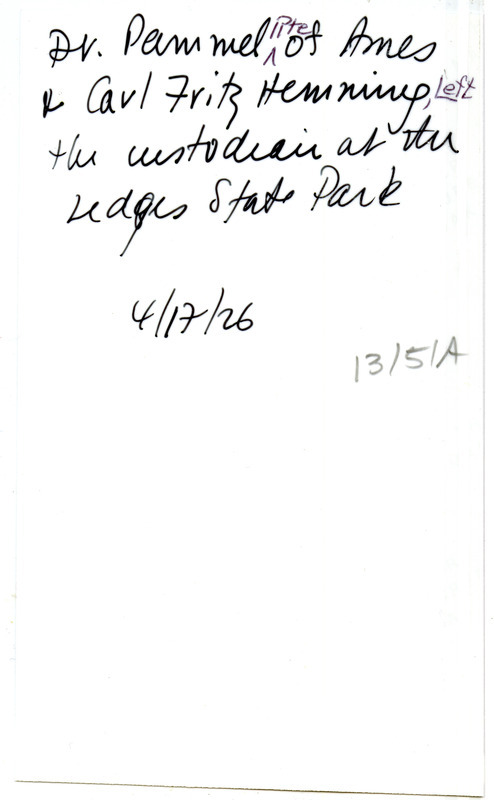 Dr. Pammel, rite of Ames
& Carl Fritz Henning, Left
the custodian at the
Ledges State Park
4/17/26
13/5/A